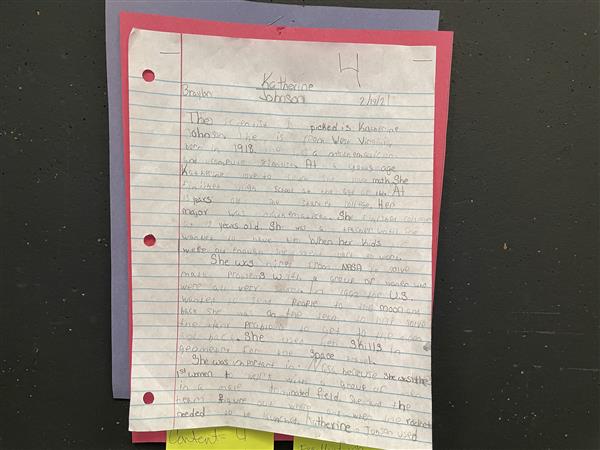 4
Katherine
Johnson
Braylon
2/19/21
The scientist I picked is Katherine
Johnson. She is from West Virginia,
born in 1918. She is a mathematician
and computer scientist. At a young age
Katherine love to math. She
finished high school at the age of At
15 years old she started college. Her
major was mathematics. She finished college
at years old. She was a teacher until she
wanted to have kids. When her kids
were old enough she went back to work.
She was hired from NASA to solve
math problems with a group of women who
were all very In 1962 the U.S.
wanted to send people to the moon and
back she was on the team to help solve
the math problems to get to the moon
and back. She used her skills in
geometry for the space travel.
She was important in NASA because she was the
1st women to work with a group of
in a male dominated field. She was the
team figure out where and when the rocket
needed to be launched. Katherine Jonson used
Content = 4